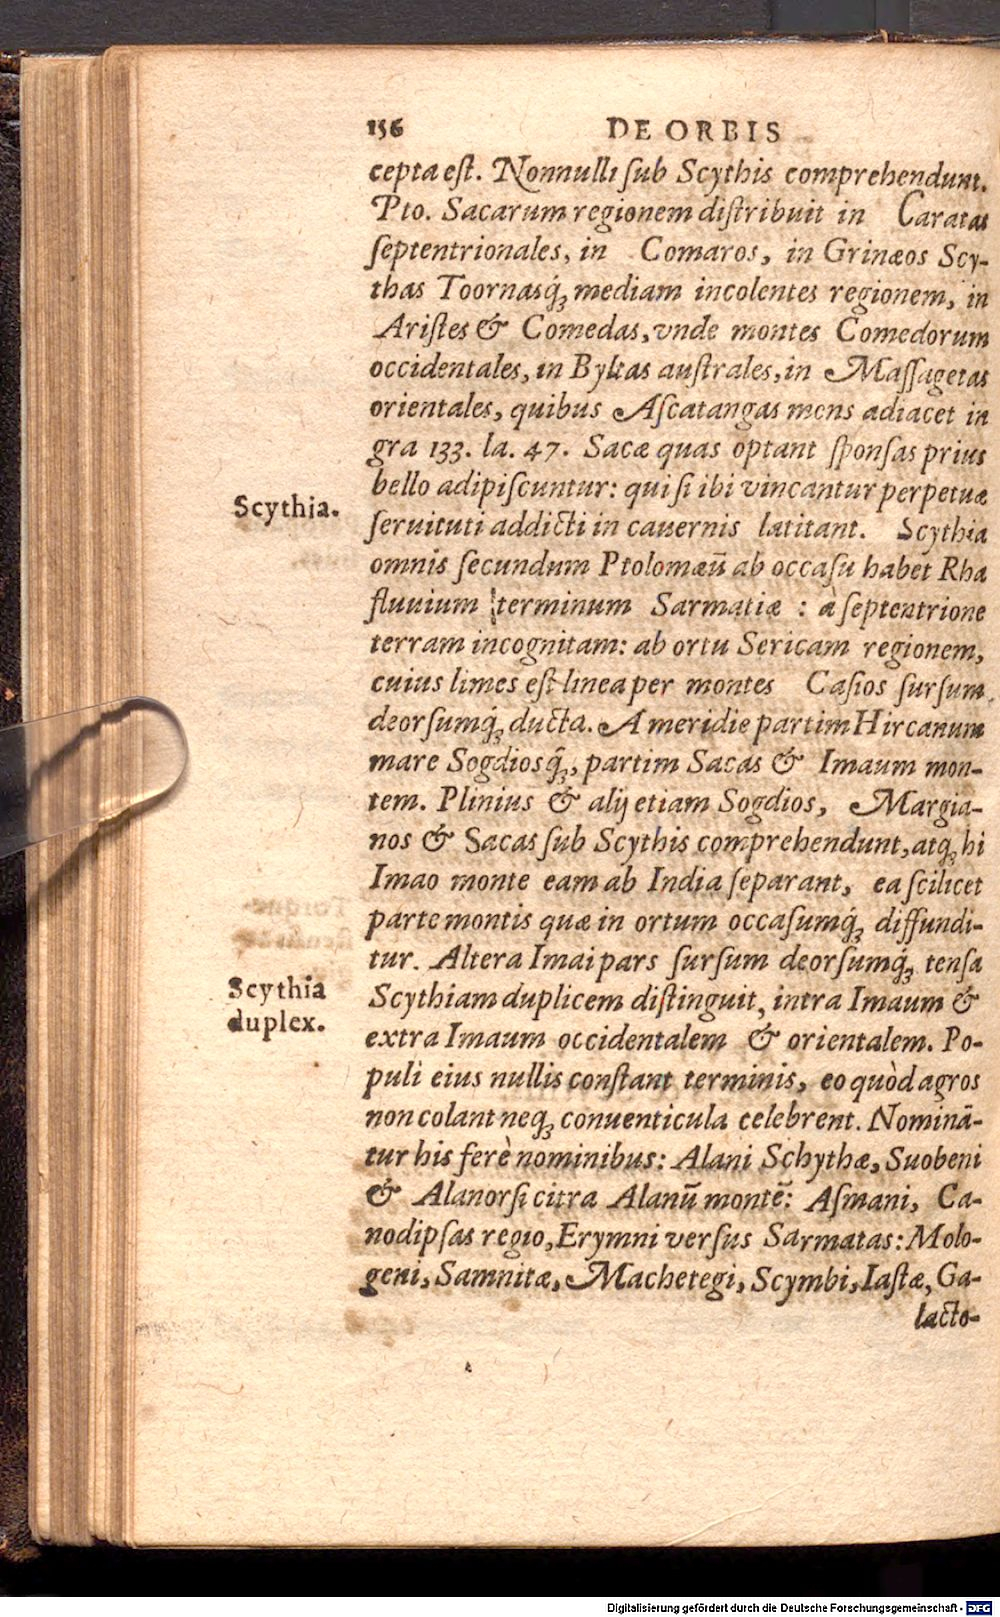 156 DE ORBIS
cepta eſt. Nonnulli ſub Scythis comprehendunt.
Pto. Sacarum regionem diſtribuit in Caratas
ſeptentrionales, in Comaros, in Grinæos Scy-
thas Toornasq́ꝫ mediam incolentes regionem, in
Ariſtes & Comedas, vnde montes Comedorum
occidentales, in Byltas auſtrales, in Maſſagetas
orientales, quibus Aſcatangas mons adiacet in
gra 133. la. 47. Sacæ quas optant ſponſas prius
bello adipiſcuntur: qui ſi ibi vincantur perpetuæ
Scythia.
ſeruituti addicti in cauernis latitant. Scythia
omnis ſecundum Ptolomæū ab occaſu habet Rha
fluuium terminum Sarmatiæ : à ſeptentrione
terram incognitam: ab ortu Sericam regionem,
cuius limes eſt linea per montes Caſios ſurſum
deorſumq́ꝫ ducta. A meridie partim Hircanum
mare Sogdiosq̃ꝫ, partim Sacas & Imaum mon-
tem. Plinius & alij etiam Sogdios, Margia-
nos & Sacas ſub Scythis comprehendunt, atqꝫ hi
Imao monte eam ab India ſeparant, ea ſcilicet
parte montis quæ in ortum occaſumq́ꝫ diffundi-
tur. Altera Imai pars ſurſum deorſumq́ꝫ tenſa
Scythia
duplex.
Scythiam duplicem diſtinguit, intra Imaum &
extra Imaum occidentalem & orientalem. Po-
puli eius nullis conſtant terminis, eo quòd agros
non colant neqꝫ conuenticula celebrent. Nominā-
tur his ferè nominibus: Alani Schythæ, Suobeni
& Alanorſi citra Alanū montē: Aſmani, Ca-
nodipſas regio, Erymni verſus Sarmatas: Molo-
geni, Samnitæ, Machetegi, Scymbi, Iaſtæ, Ga-
lacto-
Digitalisierung gefördert durch die Deutsche Forschungsgemeinschaft - DFG